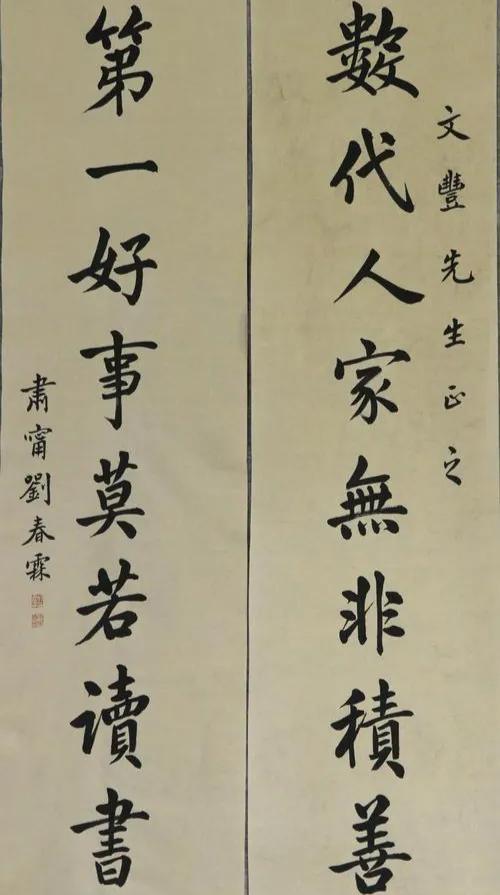 文豐先生正之
數代人家無非積善
第一好事莫若讀書
肅甯劉春霖